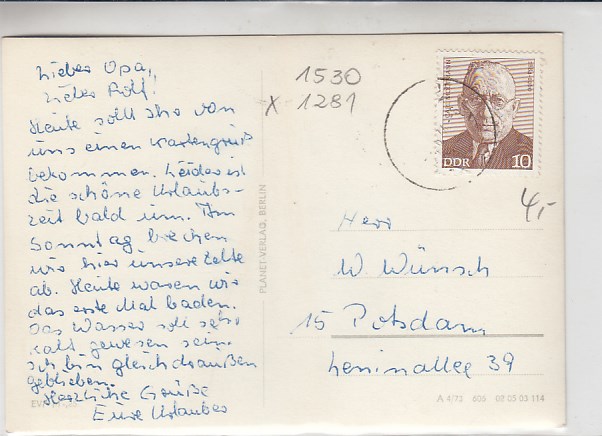 Lieber Opa,
Lieber Rolf!
Heute sollt ihr von
uns einen Kartengruß
bekommen. Leider ist
die schöne Urlaubs-
zeit bald um. Am
Sonntag brechen
wir hier unsere Zelte
ab. Heute waren wir
das erste Mal baden.
Das Wasser soll sehr
kalt gewesen sein.
Ich bin gleich draußen
geblieben.
Herzliche Grüße
Eure Urlauber
PLANET-VERLAG, BERLIN
1530
x 1281
DDR 10
4,-
Herr
W Wünsch
15 Potsdam
Leninallee 39
A 4/73 605 02 05 03 114